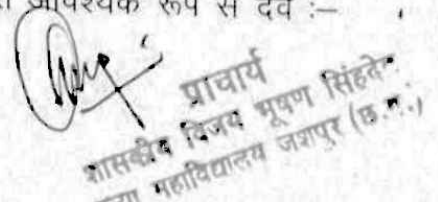 आवश्यक रूप से देवें :–
प्राचार्य
शासकीय विजय भूषण सिंहदेव
महाविद्यालय जशपुर (छ.ग.)